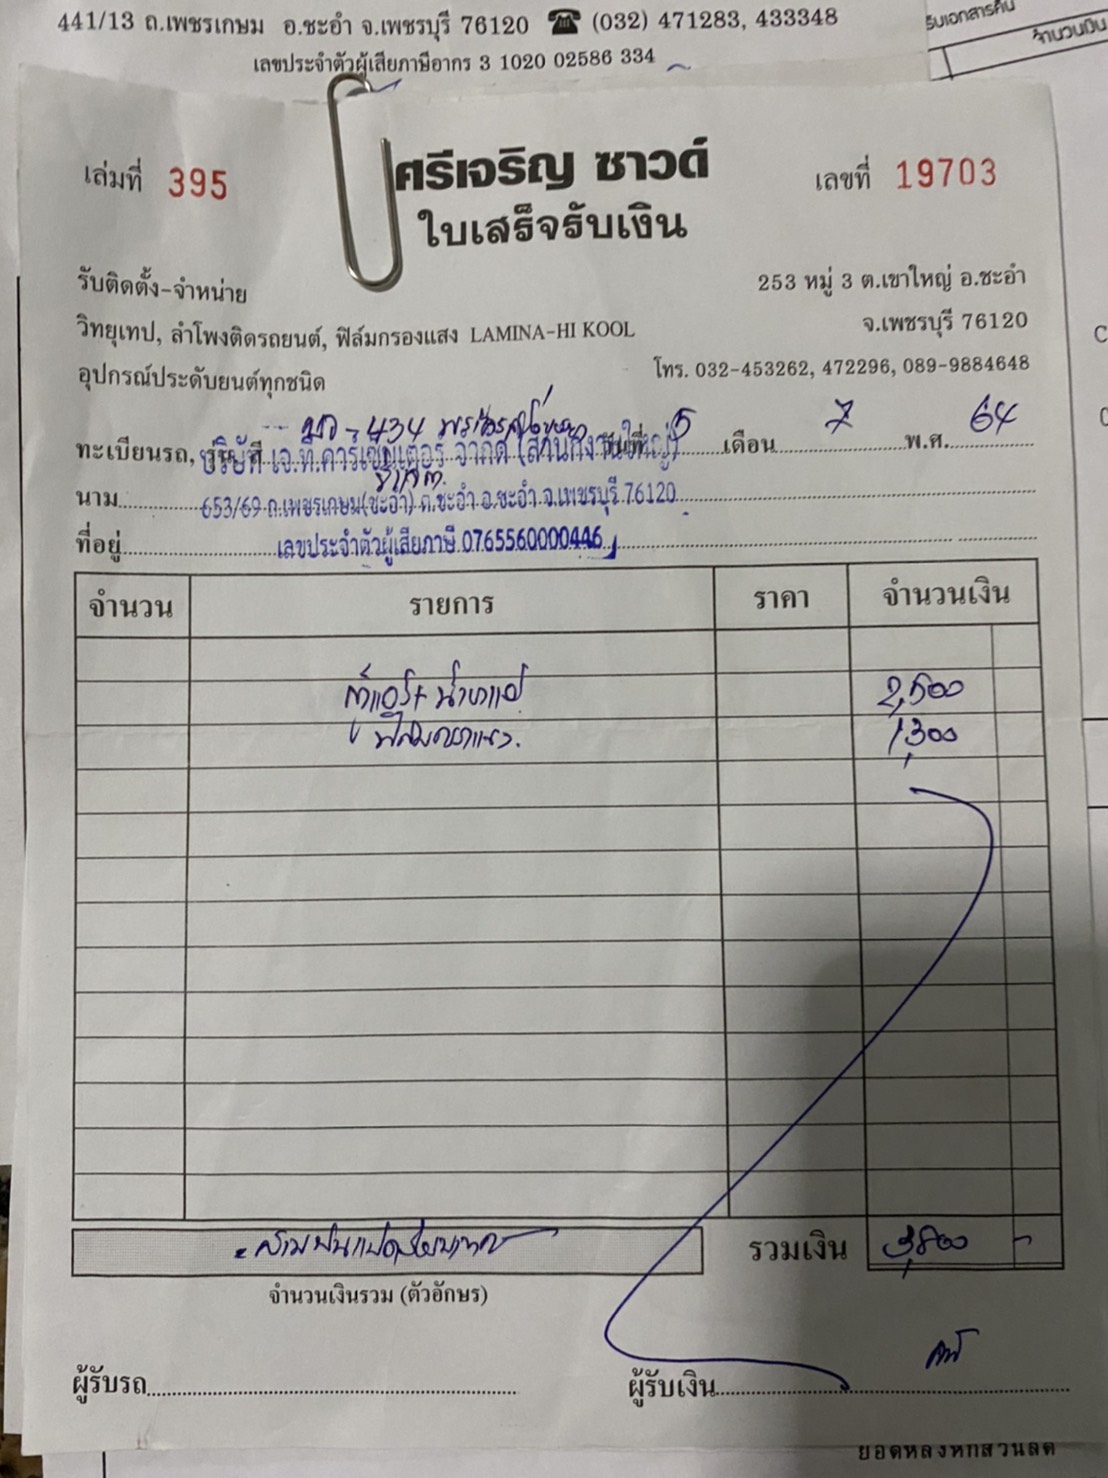 441/13 ถ.เพชรเกษม อ.ชะอำ จ.เพชรบุรี 76120 ☎ (032) 471283, 433348
เลขประจำตัวผู้เสียภาษีอากร 3 1020 02586 334
รับเอกสารคืน
จำนวนเงิน
เล่มที่ 395
ศรีเจริญ ซาวด์
เลขที่ 19703
ใบเสร็จรับเงิน
รับติดตั้ง-จำหน่าย
253 หมู่ 3 ต.เขาใหญ่ อ.ชะอำ
วิทยุเทป, ลำโพงติดรถยนต์, ฟิล์มกรองแสง LAMINA-HI KOOL
จ.เพชรบุรี 76120
อุปกรณ์ประดับยนต์ทุกชนิด
โทร. 032-453262, 472296, 089-9884648
434
ทะเบียนรถ, วันที่ 5 เดือน 7 พ.ศ. 64
บริษัท เจ.ที.คาร์เซ็นเตอร์ จำกัด (สำนักงานใหญ่)
นาม 653/69 ถ.เพชรเกษม(ชะอำ) ต.ชะอำ อ.ชะอำ จ.เพชรบุรี 76120
ที่อยู่ เลขประจำตัวผู้เสียภาษี 0765560000446
จำนวน รายการ ราคา จำนวนเงิน
ตู้แอร์+ น้ำยาแอร์ 2,500
ฟิล์มกรองแสง 1,300
สามพันแปดร้อยบาท รวมเงิน 3,800 -
จำนวนเงินรวม (ตัวอักษร)
ผู้รับรถ ผู้รับเงิน
ยอดหลังหักส่วนลด